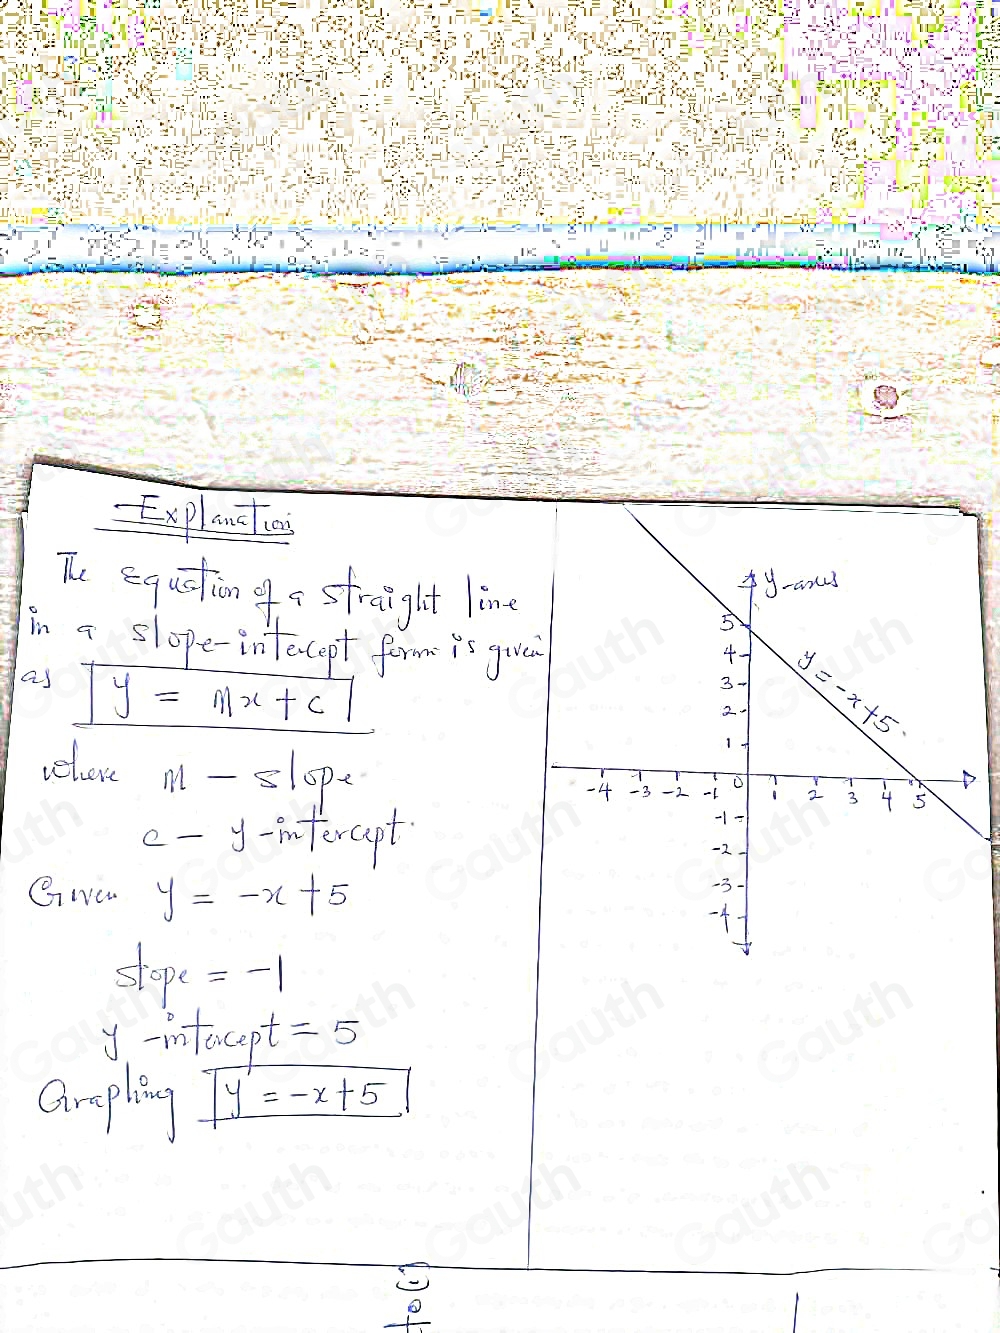 Explanation
The equation of a straight line
in a slope-intercept form is given
as y = Mx + c
where M - slope
c - y-intercept.
Given y = -x + 5
slope = -1
y-intercept = 5
Graphing y = -x + 5
y-axis
5
4
3
2
1
y = -x + 5.
-4 -3 -2 -1 0 1 2 3 4 5
-1
-2
-3
-4
Gauth